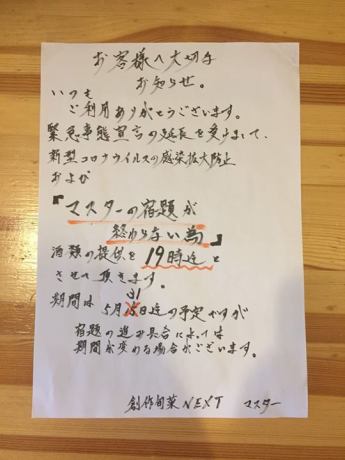 お客様へ大切な
お知らせ。
いつも
ご利用ありがとうございます。
緊急事態宣言の延長を受けまして、
新型コロナウイルスの感染拡大防止
および
『マスターの宿題が
終わらない為』
酒類の提供を19時迄と
させて頂きます。
31
期間は5月15日迄の予定ですが
宿題の進み具合によっては
期間が変わる場合がございます。
創作旬菜NEXT マスター